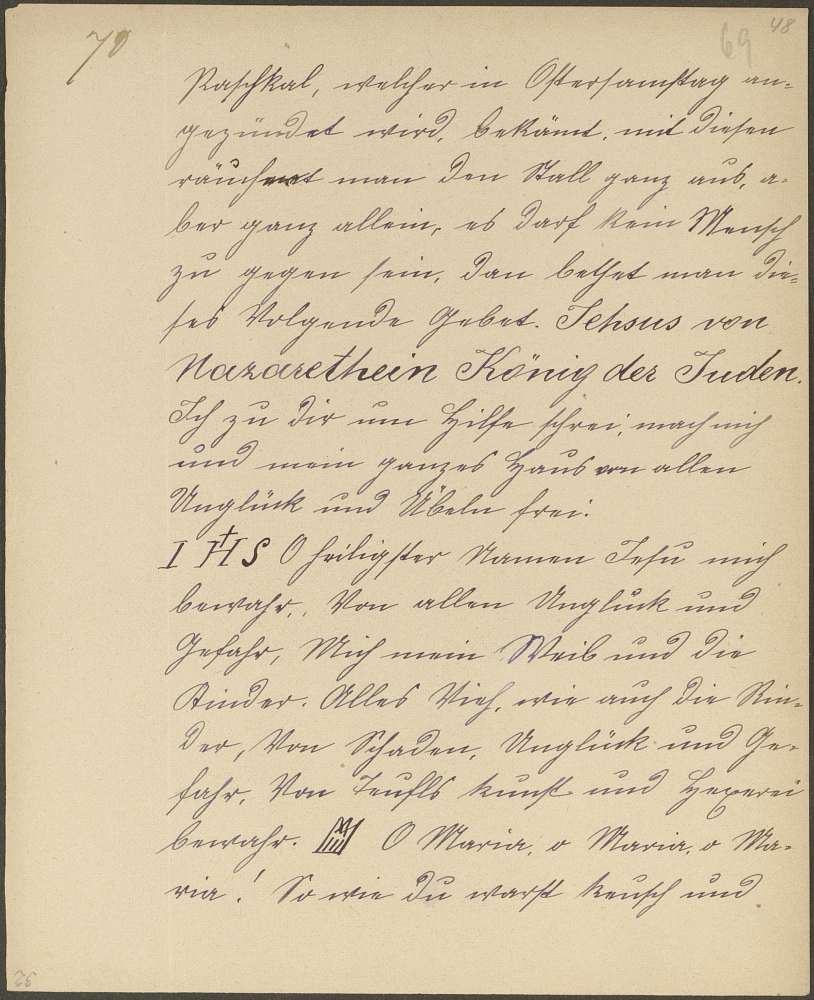 70
69
48
Raschkal, welcher in Ostersamstag an-
gezündet wird, bekämt, mit diesen
räuchert man den Stall ganz aus, a-
ber ganz allein, es darf kein Mensch
zu gegen sein, dan bethet man die-
ses Volgende Gebet. Jehsus von
Nazarethein König der Juden.
Ich zu dir um Hilfe schrei, mach mich
und mein ganzes Haus von allen
Unglück und Übeln frei.
I H S O heiligster Namen Jesu mich
bewahr, Von allen Unglück und
Gefahr, Mich mein Weib und die
Kinder. Alles Vieh, wie auch die Rin-
der, Von Schaden, Unglück und Ge-
fahr, Von Teufls kunst und Hexerei
bewahr. O Maria, o Maria, o Ma-
ria! So wie du warst keusch und